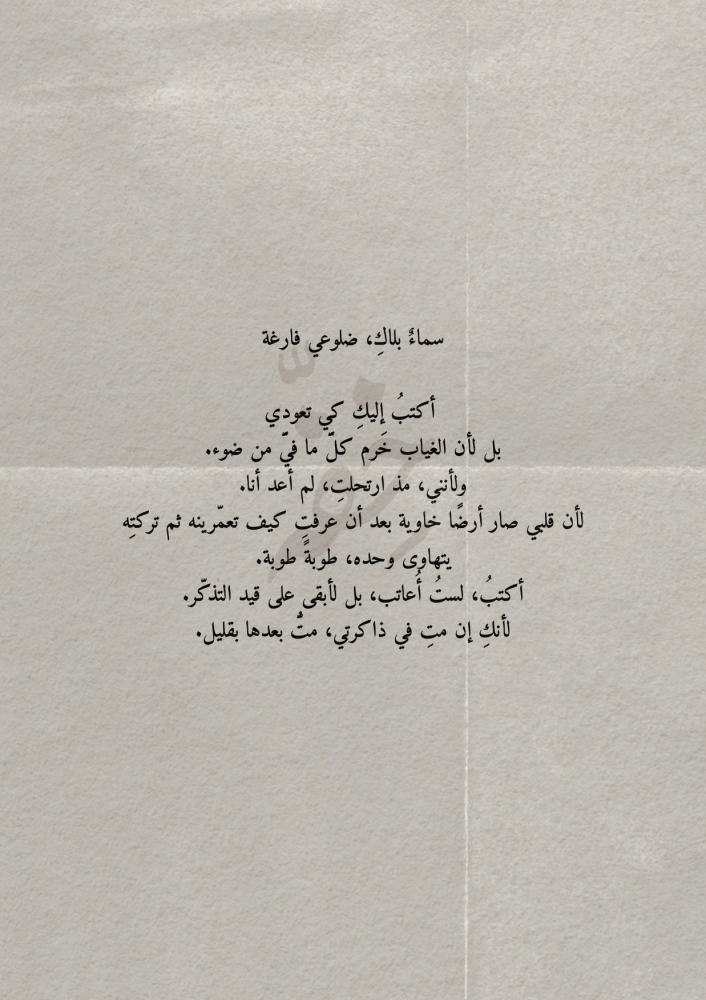 سماءٌ بلاكِ، ضلوعي فارغة
أكتبُ إليكِ كي تعودي
بل لأن الغياب خَرم كلّ ما فيّ من ضوء.
ولأنني، مذ ارتحلتِ، لم أعد أنا.
لأن قلبي صار أرضًا خاوية بعد أن عرفتِ كيف تعمّرينه ثم تركتِه
يتهاوى وحده، طوبةً طوبة.
أكتبُ، لستُ أُعاتب، بل لأبقى على قيد التذكّر.
لأنكِ إن متِ في ذاكرتي، متُّ بعدها بقليل.